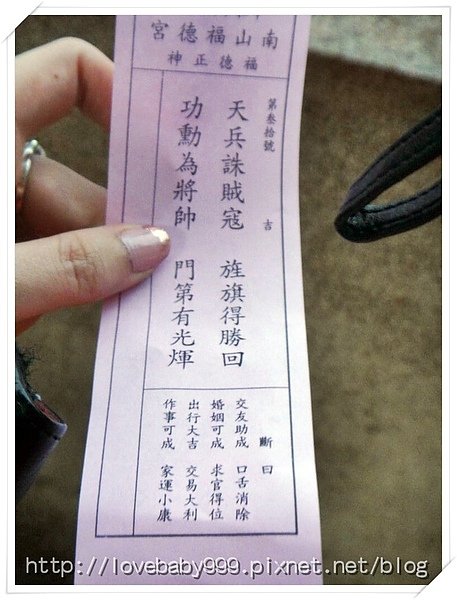 南山福德宮
福德正神
第叁拾號 吉
天兵誅賊寇 旌旗得勝回
功勳為將帥 門第有光煇
斷曰
交友助成 口舌消除
婚姻可成 求官得位
出行大吉 交易大利
作事可成 家運小康
http://lovebaby999.pixnet.net/blog